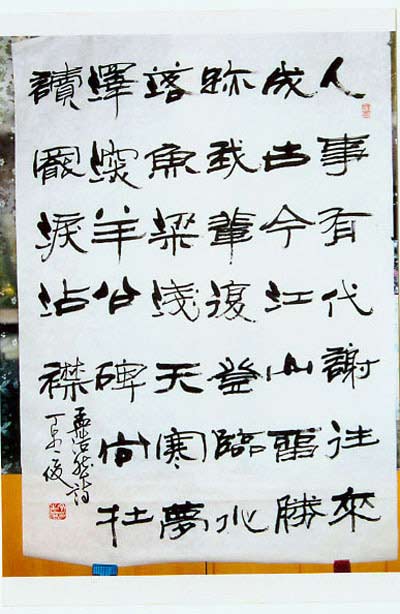 人事有代謝往來
成古今江山留勝
跡我輩復登臨水
落魚梁淺天寒夢
澤深羊公碑尚在
讀罷淚沾襟
孟浩然詩
丁 俊